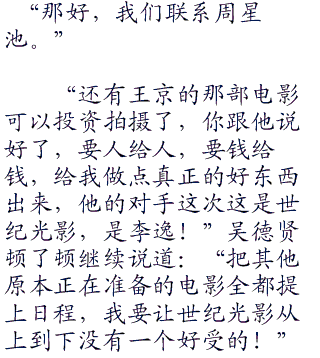 “那好，我们联系周星
池。”
“还有王京的那部电影
可以投资拍摄了，你跟他说
好了，要人给人，要钱给
钱，给我做点真正的好东西
出来，他的对手这次这是世
纪光影，是李逸！”吴德贤
顿了顿继续说道：“把其他
原本正在准备的电影全都提
上日程，我要让世纪光影从
上到下没有一个好受的！”